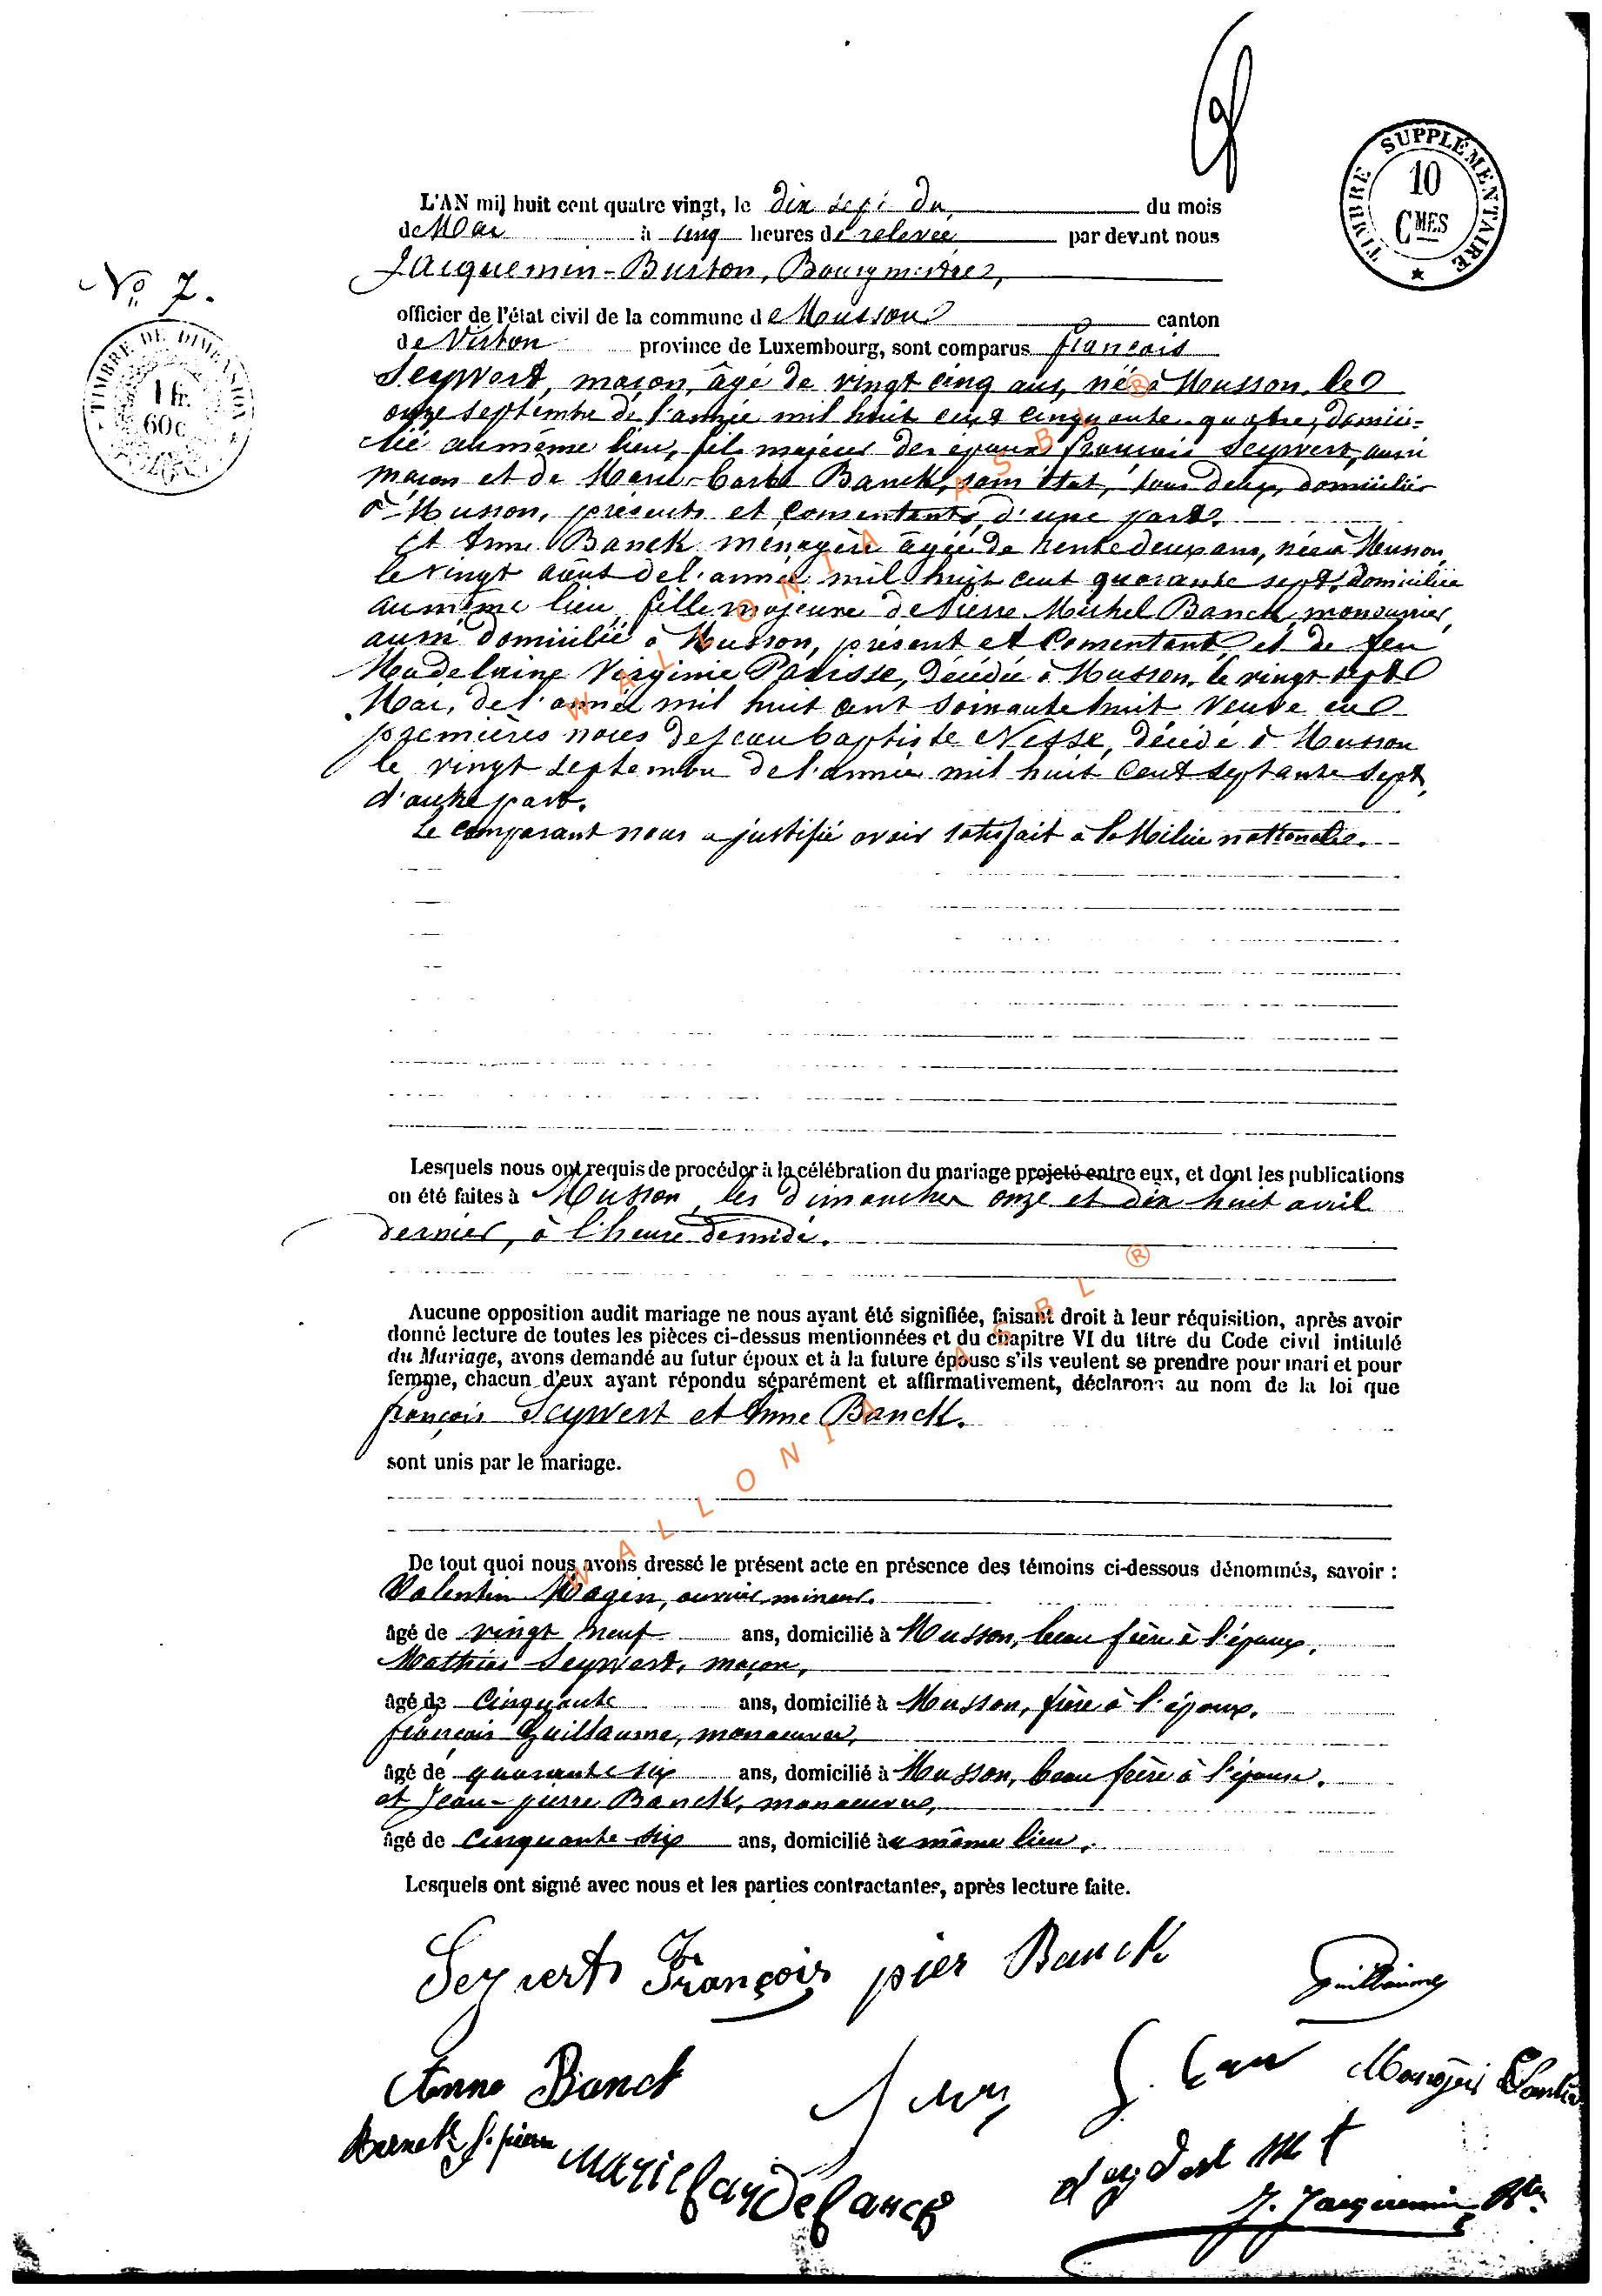 TIMBRE SUPPLÉMENTAIRE
10
CMES
No 7.
TIMBRE DE DIMENSION
1 fr.
60c
L'AN mil huit cent quatre vingt, le dix sept du du mois
de Mai à cinq heures de relevée par devant nous
Jacquemin-Burton, Bourgmestre,
officier de l'état civil de la commune de Musson canton
de Virton province de Luxembourg, sont comparus françois
Seywert, maçon, âgé de vingt cinq ans, né à Musson, le
onze septembre de l'année mil huit cent cinquante quatre, domici-
lié au même lieu, fils majeur des époux François Seywert, aussi
maçon et de Marie-Barbe Banck, sans état, tous deux domiciliés
à Musson, présents et consentants, d'une part.
Et Anne Banck ménagère âgée de trente deux ans, née à Musson,
le vingt août de l'année mil huit cent quarante sept, domiciliée
au même lieu, fille majeure de Pierre Michel Banck, manouvrier,
aussi domicilié à Musson, présent et consentant et de feu
Madelaine Virginie Parisse, décédée à Musson, le vingt sept
Mai, de l'année mil huit cent soixante huit Veuve en
premières noces de Jean baptiste Nesse, décédé à Musson
le vingt septembre de l'année mil huit cent septante sept,
d'autre part.
Le comparant nous a justifié avoir satisfait à la Milice nationale.
Lesquels nous ont requis de procéder à la célébration du mariage projeté entre eux, et dont les publications
on été faites à Musson, les dimanches onze et dix huit avril
dernier, à l'heure de midi.
Aucune opposition audit mariage ne nous ayant été signifiée, faisant droit à leur réquisition, après avoir
donné lecture de toutes les pièces ci-dessus mentionnées et du chapitre VI du titre du Code civil intitulé
du Mariage, avons demandé au futur époux et à la future épouse s'ils veulent se prendre pour mari et pour
femme, chacun d'eux ayant répondu séparément et affirmativement, déclarons au nom de la loi que
françois Seywert et Anne Banck.
sont unis par le mariage.
De tout quoi nous avons dressé le présent acte en présence des témoins ci-dessous dénommés, savoir :
Valentin Magin, ouvrier mineur.
âgé de vingt neuf ans, domicilié à Musson, beau frère à l'époux.
Mathias Seywert, maçon,
âgé de cinquante ans, domicilié à Musson, frère à l'époux.
françois Guillaume, manouvrier,
âgé de quarante six ans, domicilié à Musson, beau frère à l'épouse.
et Jean-pierre Banck, manoeuvre,
âgé de cinquante six ans, domicilié au même lieu.
Lesquels ont signé avec nous et les parties contractantes, après lecture faite.
Seywert François pier Banck
Guillaume
Anne Banck
J. Jacquemin
WALLONIA ASBL ®
WALLONIA ASBL ®